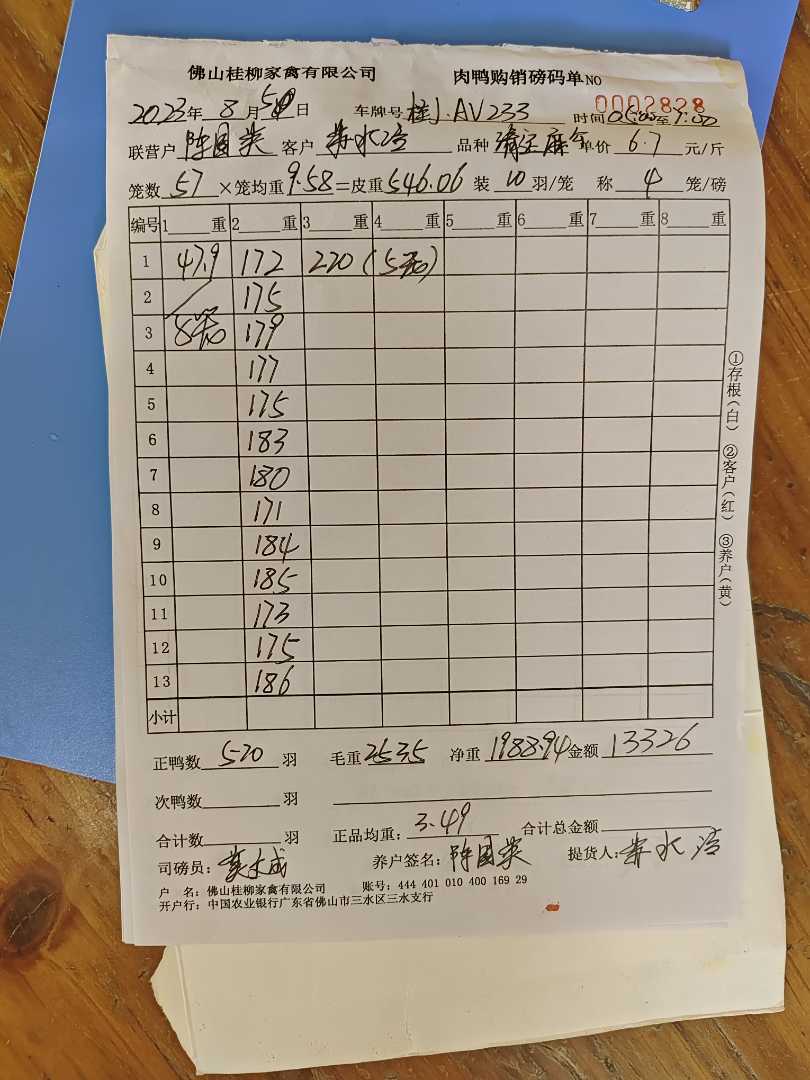 佛山桂柳家禽有限公司 肉鸭购销磅码单 NO 0002828
2023年 8月 5日 车牌号 桂J·AV233 时间 至
联营户 陈国英 客户 品种 单价 6.7 元/斤
笼数 57 ×笼均重 9.58 =皮重 546.06 装 10 羽/笼 称 4 笼/磅
编号 1 重 2 重 3 重 4 重 5 重 6 重 7 重 8 重
1 47.9 172 220 (5笼)
2 175
3 179
4 177
5 175
6 183
7 180
8 171
9 184
10 185
11 173
12 175
13 186
小计
正鸭数 520 羽 毛重 2535 净重 1988.94 金额 13326
次鸭数 羽
合计数 羽 正品均重: 3.49 合计总金额
司磅员: 养户签名: 陈国英 提货人:
户 名: 佛山桂柳家禽有限公司 账号: 444 401 010 400 169 29
开户行: 中国农业银行广东省佛山市三水区三水支行
①存根(白) ②客户(红) ③养户(黄)